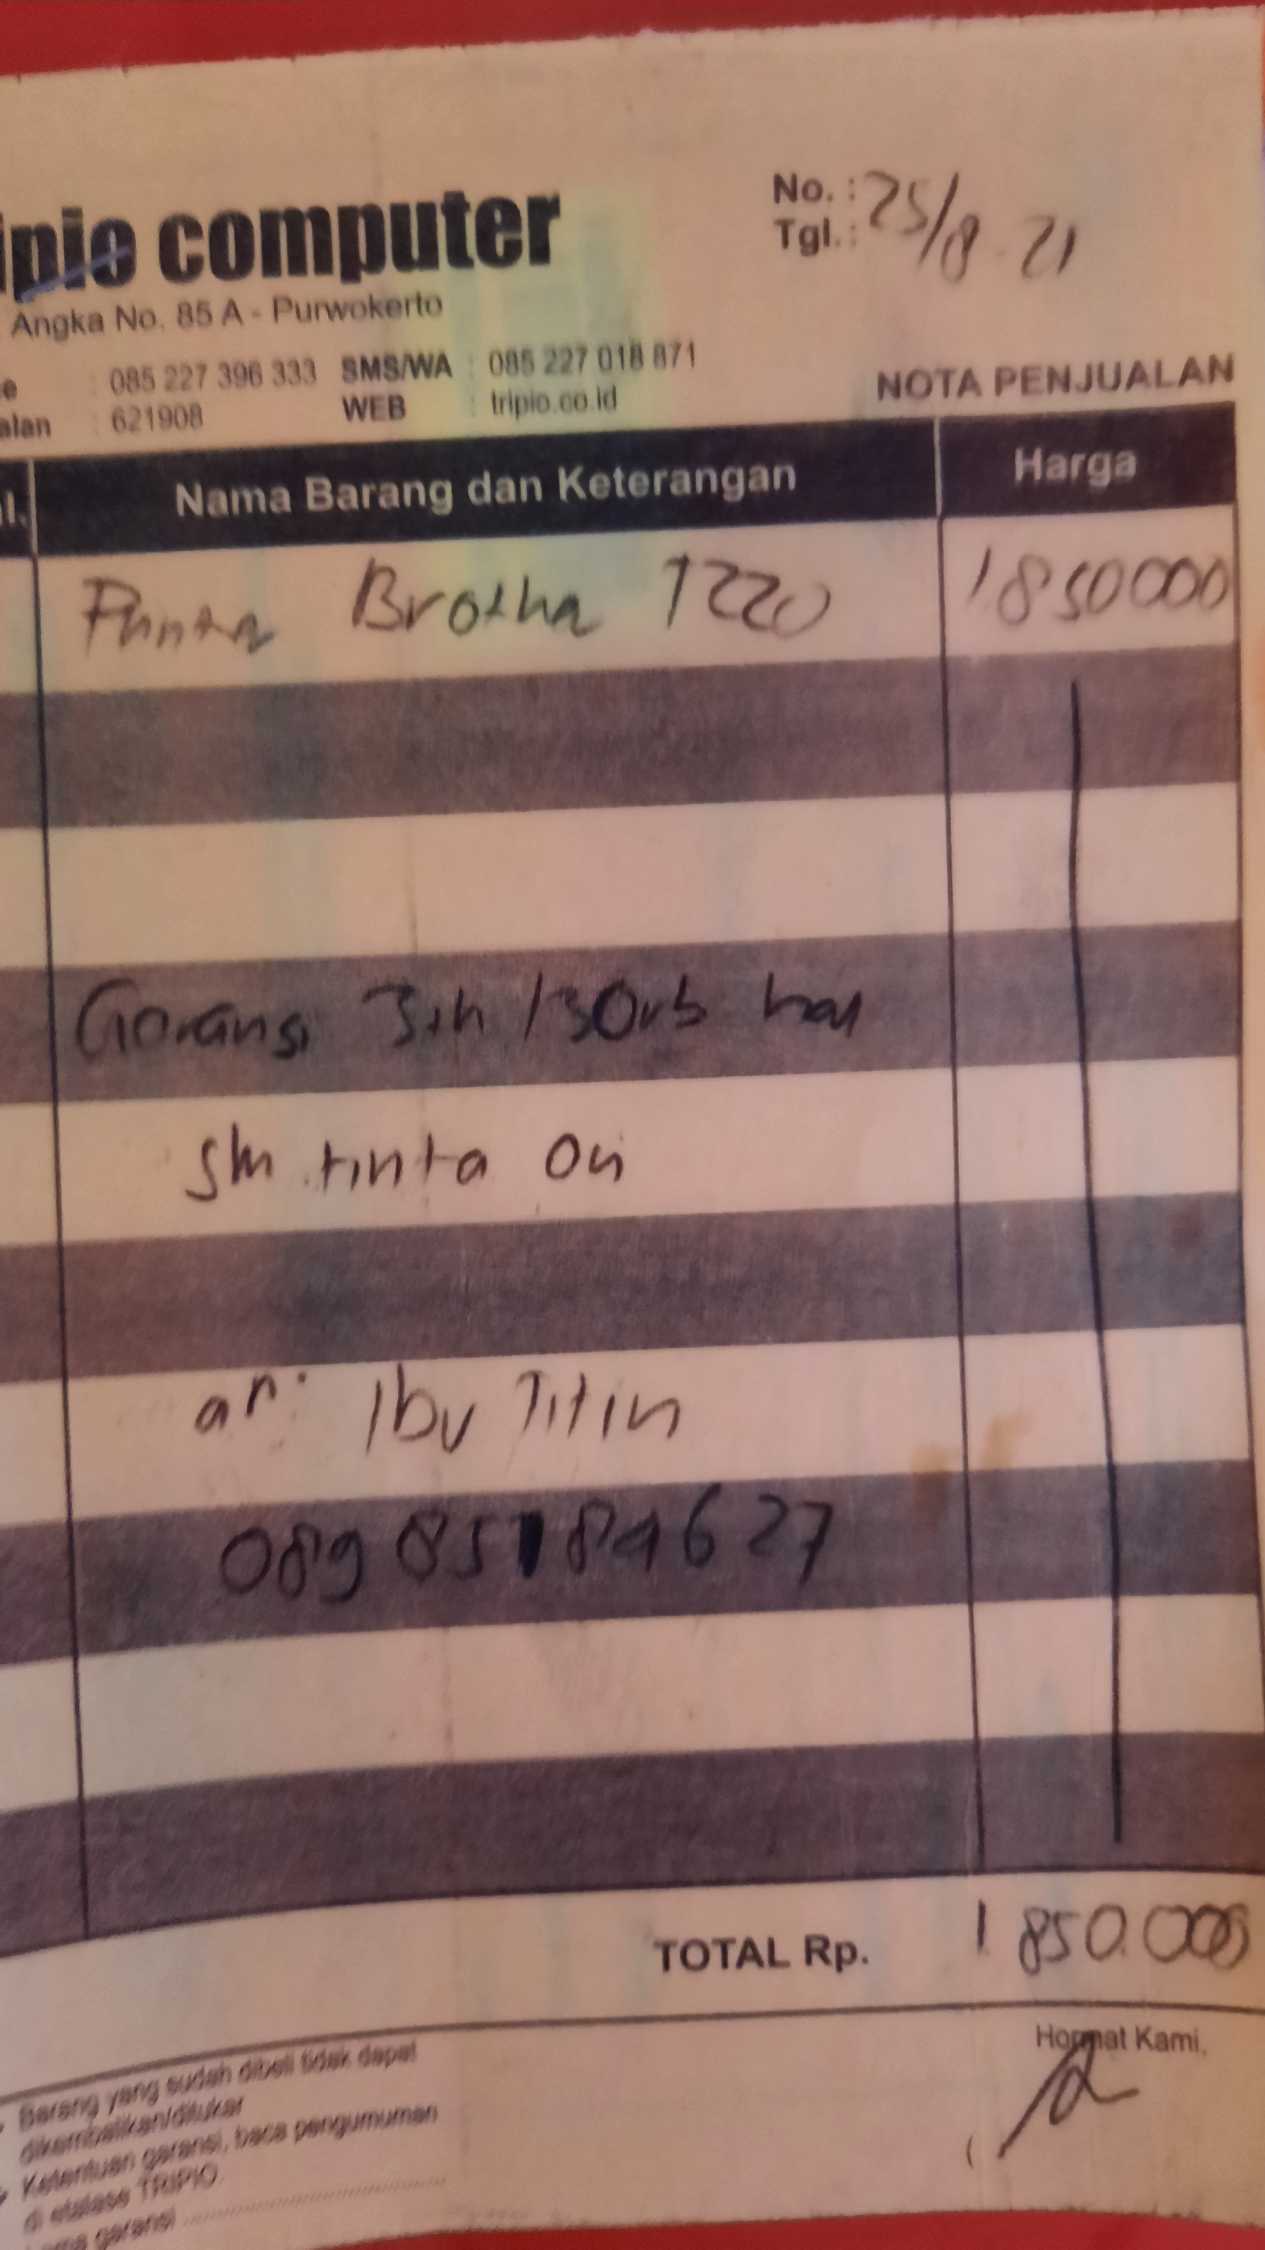 ipio computer
No. :
Tgl. : 25/8-21
Angka No. 85 A - Purwokerto
e : 085 227 396 333 SMS/WA : 085 227 018 871
alan : 621908 WEB : tripio.co.id
NOTA PENJUALAN
l. Nama Barang dan Keterangan Harga
Brother T220 1850000
Garansi 3th /30rb
tinta ori
an. Ibu Titin
TOTAL Rp. 1.850.000
Hormat Kami,
Barang yang sudah dibeli tidak dapat
dikembalikan/ditukar
Ketentuan garansi, baca pengumuman
di etalase TRIPIO
garansi